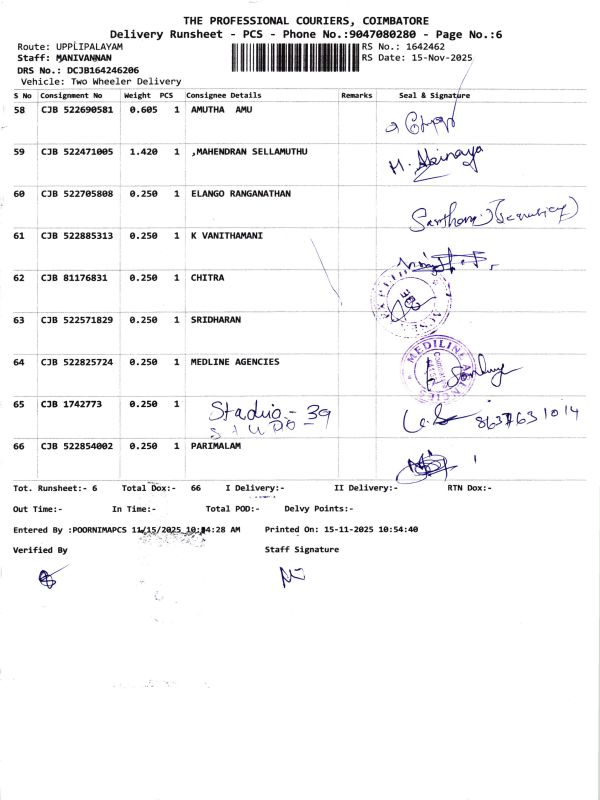 THE PROFESSIONAL COURIERS, COIMBATORE
Delivery Runsheet - PCS - Phone No.:9047080280 - Page No.:6
Route: UPPLIPALAYAM RS No.: 1642462
Staff: MANIVANNAN RS Date: 15-Nov-2025
DRS No.: DCJB164246206
Vehicle: Two Wheeler Delivery
S No Consignment No Weight PCS Consignee Details Remarks Seal & Signature
58 CJB 522690581 0.605 1 AMUTHA AMU
59 CJB 522471005 1.420 1 ,MAHENDRAN SELLAMUTHU M. Abinaya
60 CJB 522705808 0.250 1 ELANGO RANGANATHAN
61 CJB 522885313 0.250 1 K VANITHAMANI
62 CJB 81176831 0.250 1 CHITRA
63 CJB 522571829 0.250 1 SRIDHARAN
64 CJB 522825724 0.250 1 MEDLINE AGENCIES MEDILINE AGENCIES
65 CJB 1742773 0.250 1 Stadio - 39 8637631014
STUDO
66 CJB 522854002 0.250 1 PARIMALAM
Tot. Runsheet:- 6 Total Dox:- 66 I Delivery:- II Delivery:- RTN Dox:-
Out Time:- In Time:- Total POD:- Delvy Points:-
Entered By :POORNIMAPCS 11/15/2025 10:54:28 AM Printed On: 15-11-2025 10:54:40
Verified By Staff Signature